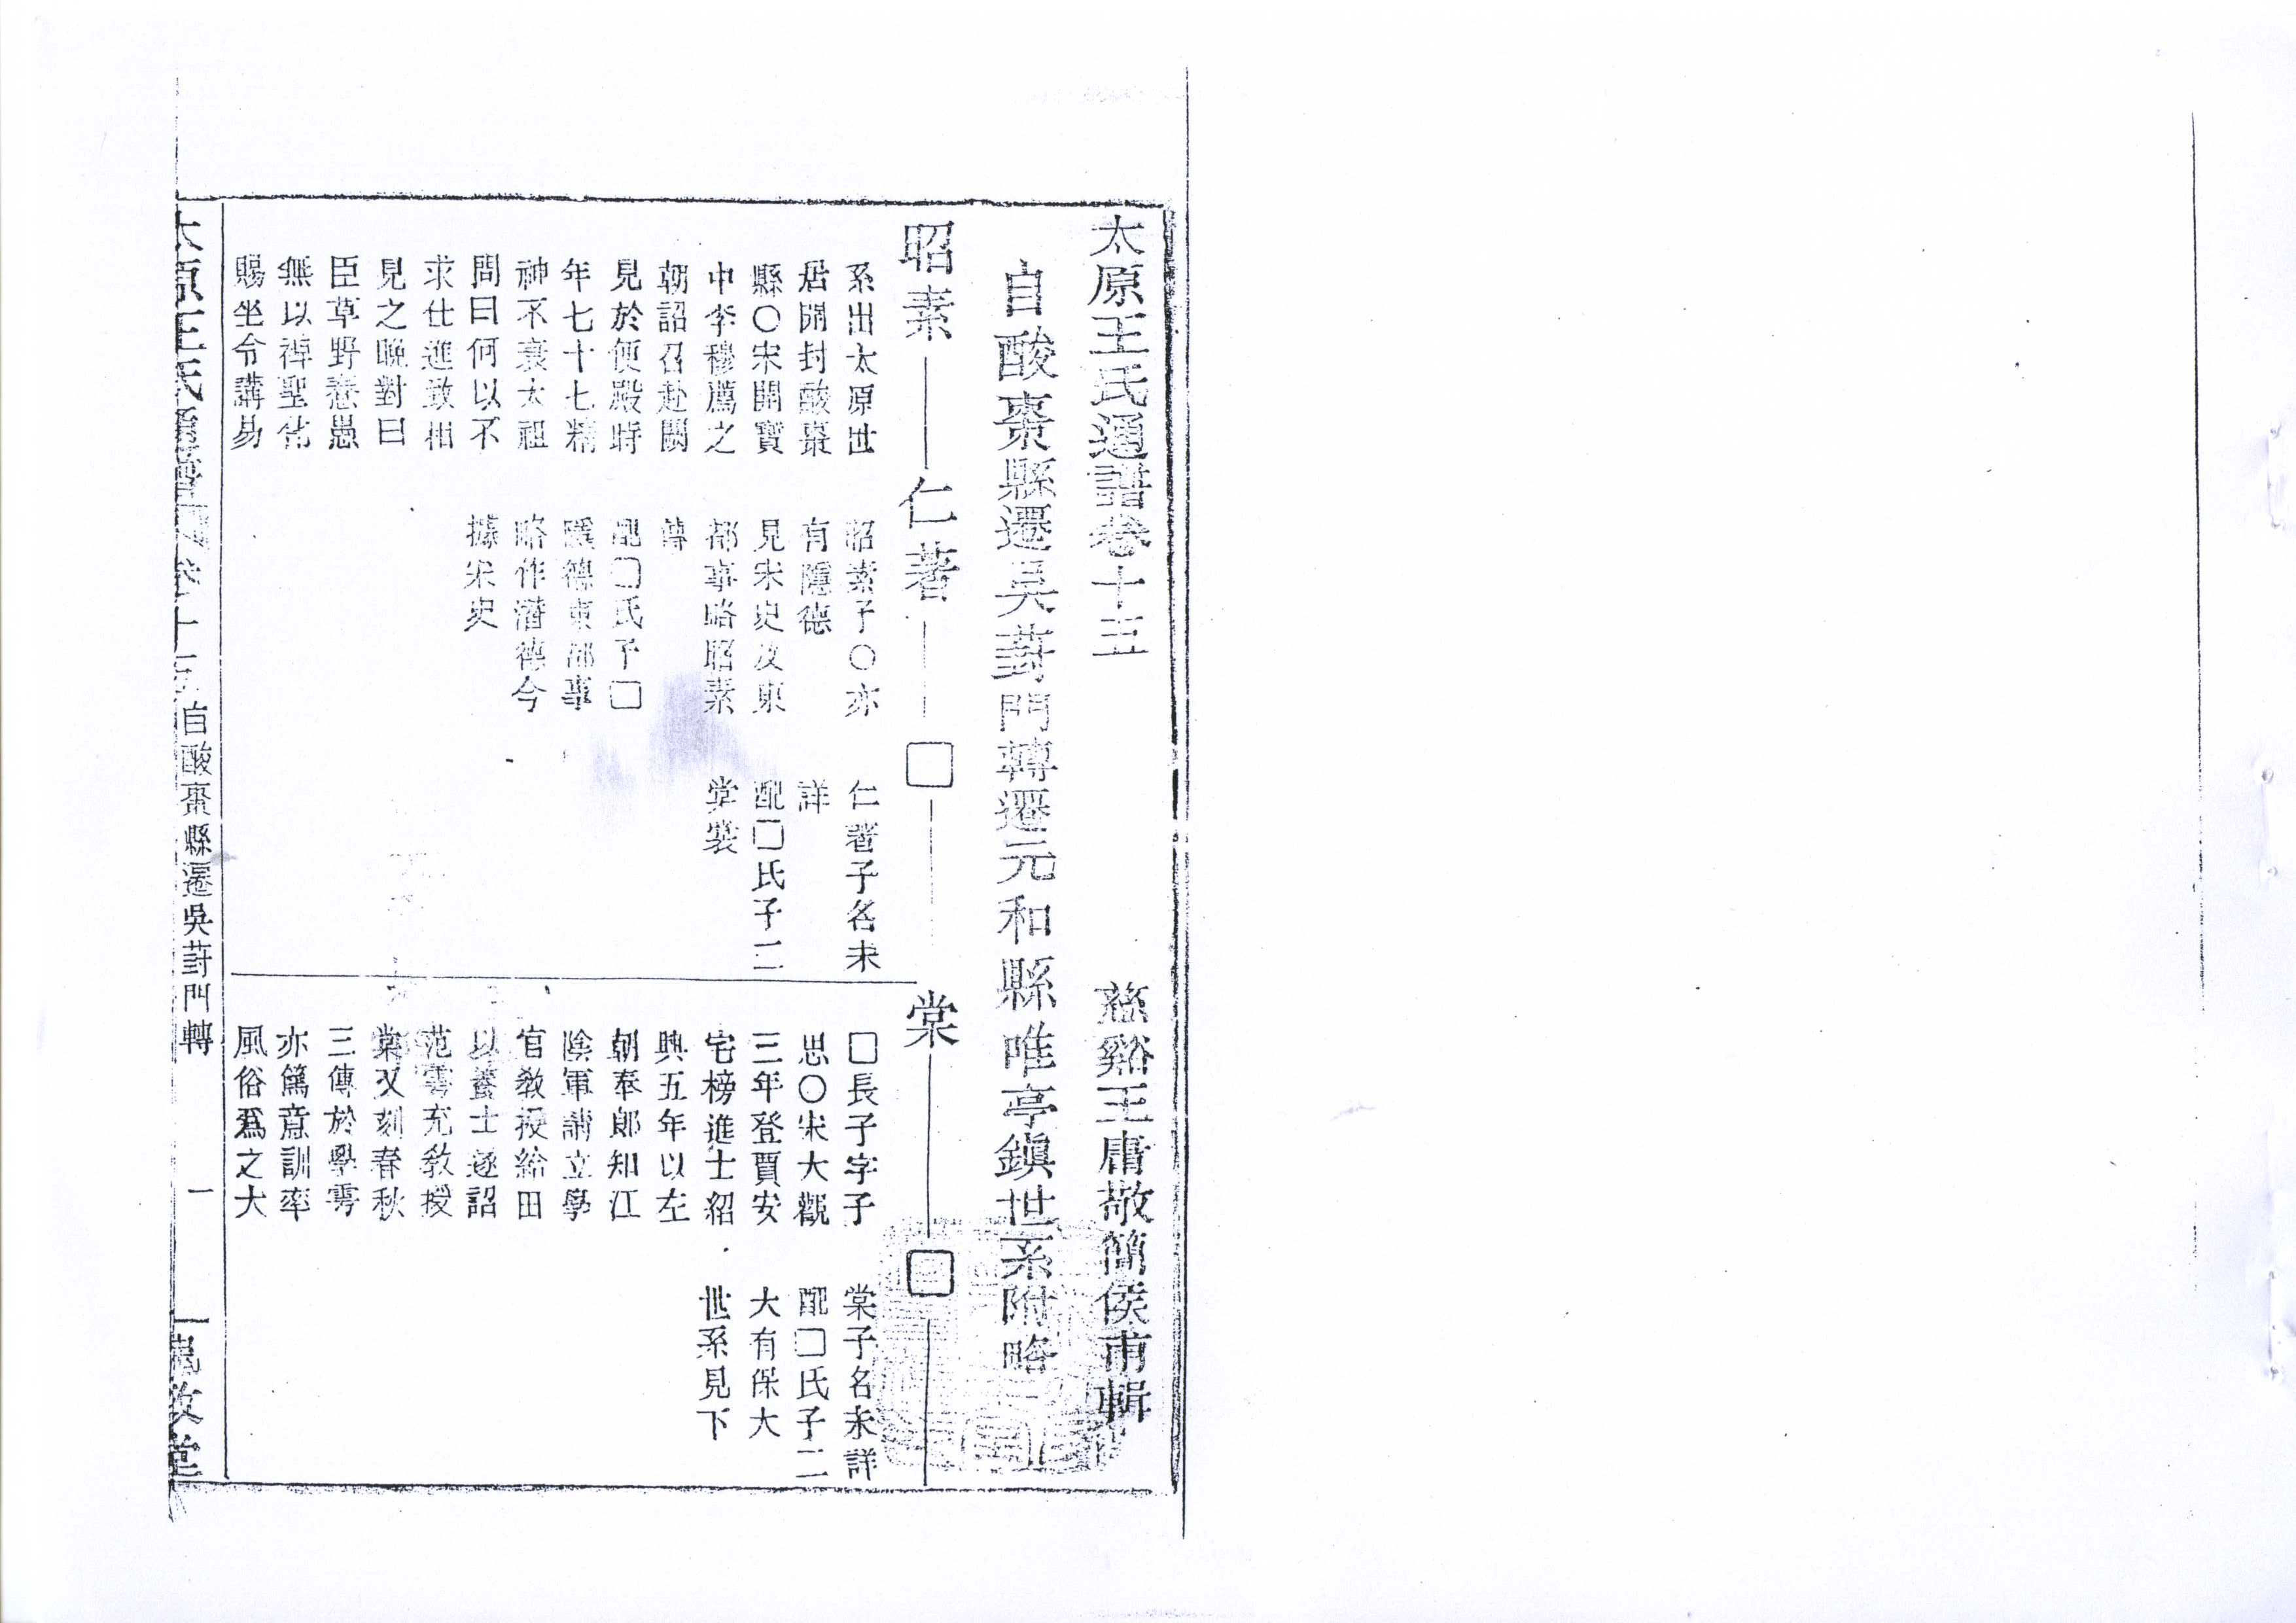 太原王氏通譜卷十三
慈谿王庸敬簡侯甫輯
自酸棗縣遷吳葑門轉遷元和縣唯亭鎮世系附略
昭素
系出太原世
居開封酸棗
縣○宋開寶
中李穆薦之
朝詔召赴闕
見於便殿時
年七十七精
神不衰太祖
問曰何以不
求仕進致相
見之晚對曰
臣草野惷愚
無以裨聖化
賜坐令講易
仁著
昭素子○亦
有隱德
見宋史及東
都事略昭素
傳
配□氏子□
隱德東都事
略作潛德今
據宋史
□
仁著子名未
詳
配□氏子二
棠裳
棠
□長子字子
思○宋大觀
三年登賈安
宅榜進士紹
興五年以左
朝奉郎知江
陰軍請立學
官教授給田
以養士遂詔
范雩充教授
棠又刻春秋
三傳於學雩
亦篤意訓率
風俗爲之大
□
棠子名未詳
配□氏子二
大有保大
世系見下
太原王氏通譜 卷十三
自酸棗縣遷吳葑門轉
一